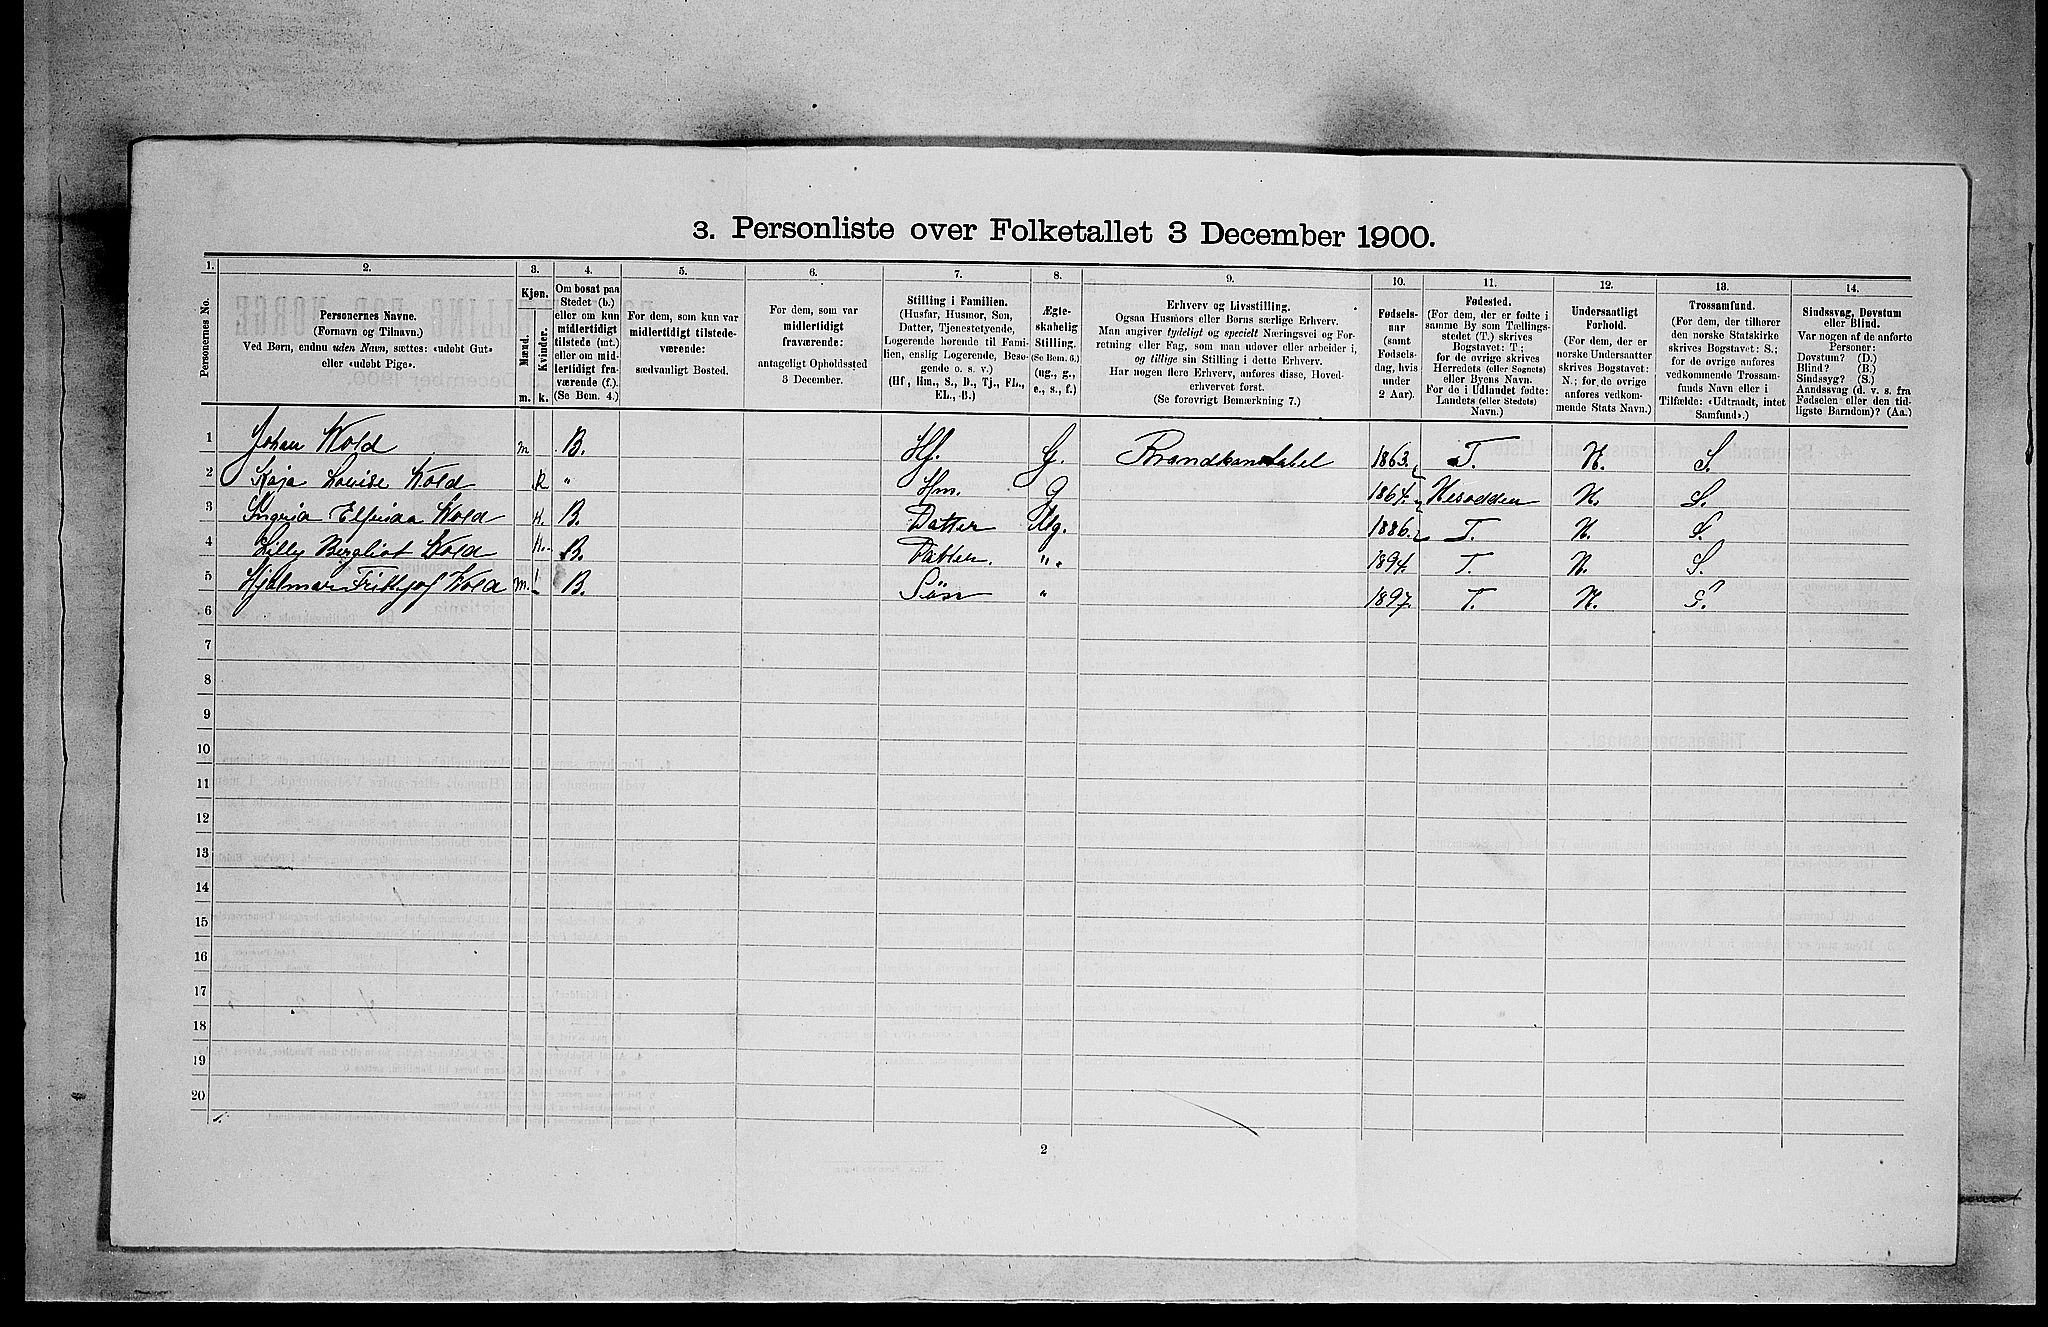 3. Personliste over Folketallet 3 December 1900.
1. 2. 3. 4. 5. 6. 7. 8. 9. 10. 11. 12. 13. 14.
Personernes No.
Personernes Navne.
(Fornavn og Tilnavn.)
Ved Børn, endnu uden Navn, sættes: «udøbt Gut»
eller «udøbt Pige».
Kjøn.
Mænd.
Kvinder.
m. k.
Om bosat paa
Stedet (b.)
eller om kun
midlertidigt
tilstede (mt.)
eller om mid-
lertidigt fra-
værende (f.).
(Se Bem. 4.)
For dem, som kun var
midlertidigt tilstede-
værende:
sædvanligt Bosted.
For dem, som var
midlertidigt
fraværende:
antageligt Opholdssted
3 December.
Stilling i Familien.
(Husfar, Husmor, Søn,
Datter, Tjenestetyende,
Logerende hørende til Fami-
lien, enslig Logerende, Besø-
gende o. s. v.)
(Hf, Hm., S., D., Tj., FL.,
EL., B.)
Ægte-
skabelig
Stilling.
(Se Bem. 6.)
(ug., g.,
e., s., f.)
Erhverv og Livsstilling.
Ogsaa Husmors eller Børns særlige Erhverv.
Man angiver tydeligt og specielt Næringsvei og For-
retning eller Fag, som man udøver eller arbeider i,
og tillige sin Stilling i dette Erhverv.
Har nogen flere Erhverv, anføres disse, Hoved-
erhvervet først.
(Se forøvrigt Bemærkning 7.)
Fødsels-
aar
(samt
Fødsels-
dag, hvis
under
2 Aar).
Fødested.
(For dem, der er fødte i
samme By som Tællings-
stedet (T.) skrives
Bogstavet: T;
for de øvrige skrives
Herredets (eller Sognets)
eller Byens Navn.
For de i Udlandet fødte:
Landets (eller Stedets)
Navn.)
Undersaatligt
Forhold.
(For dem, der er
norske Undersaatter
skrives Bogstavet:
N.; for de øvrige
anføres vedkom-
mende Stats Navn.)
Trossamfund.
(For dem, der tilhører
den norske Statskirke
skrives Bogstavet: S.;
for de øvrige anføres
vedkommende Trossam-
funds Navn eller i
Tilfælde: «Udtraadt, intet
Samfund».)
Sindssvag, Døvstum
eller Blind.
Var nogen af de anførte
Personer:
Døvstum? (D.)
Blind? (B.)
Sindssyg? (S.)
Aandssvag (d. v. s. fra
Fødselen eller den tid-
ligste Barndom)? (Aa.)
1 Johan Wold m B. Hf. G. Brandkonstabel 1863. T. N. S.
2 Kaja Lovise Wold k " Hm. G 1864. Nesodden N. S.
3 Ingrid Elfrida Wold K. B. Datter Ug. 1886. T. N. S.
4 Lilly Bergliot Wold K. B. Datter. ". 1894. T. N. S.
5 Hjalmar Frithjof Wold m. B. Søn " 1897. T. N. S.
6
7
8
9
10
11
12
13
14
15
16
17
18
19
20
2